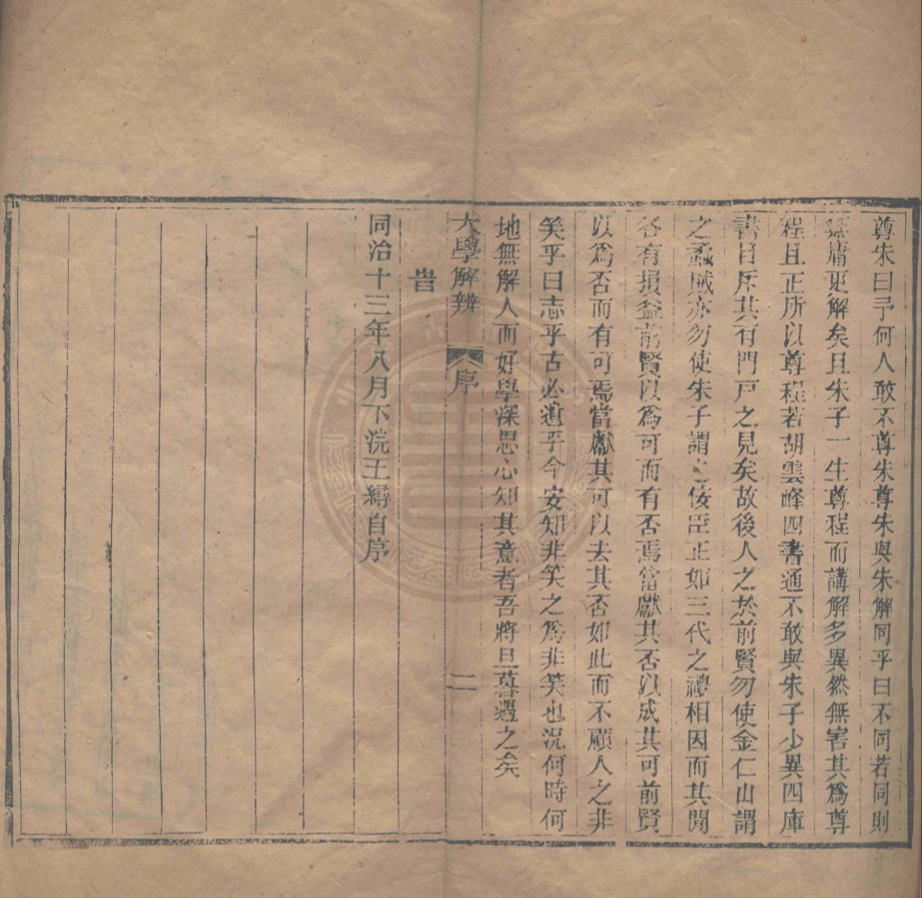 尊朱曰予何人敢不尊朱尊朱與朱解同乎曰不同若同則
庸更解矣且朱子一生尊程而講解多異然無害其爲尊
程且正所以尊程若胡雲峰四書通不敢與朱子少異四庫
書目斥其有門戸之見矣故後人之於前賢勿使金仁山謂
之蟊蜮亦勿使朱子謂之佞臣正如三代之禮相因而其閒
各有損益前賢以爲可而有否焉當獻其否以成其可前賢
以爲否而有可焉當獻其可以去其否如此而不顧人之非
笑乎曰志乎古必遺乎今安知非笑之爲非笑也況何時何
地無解人而好學深思心知其意者吾將旦暮遇之矣
大學解辨 序 二
旹
同治十三年八月下浣王 自序